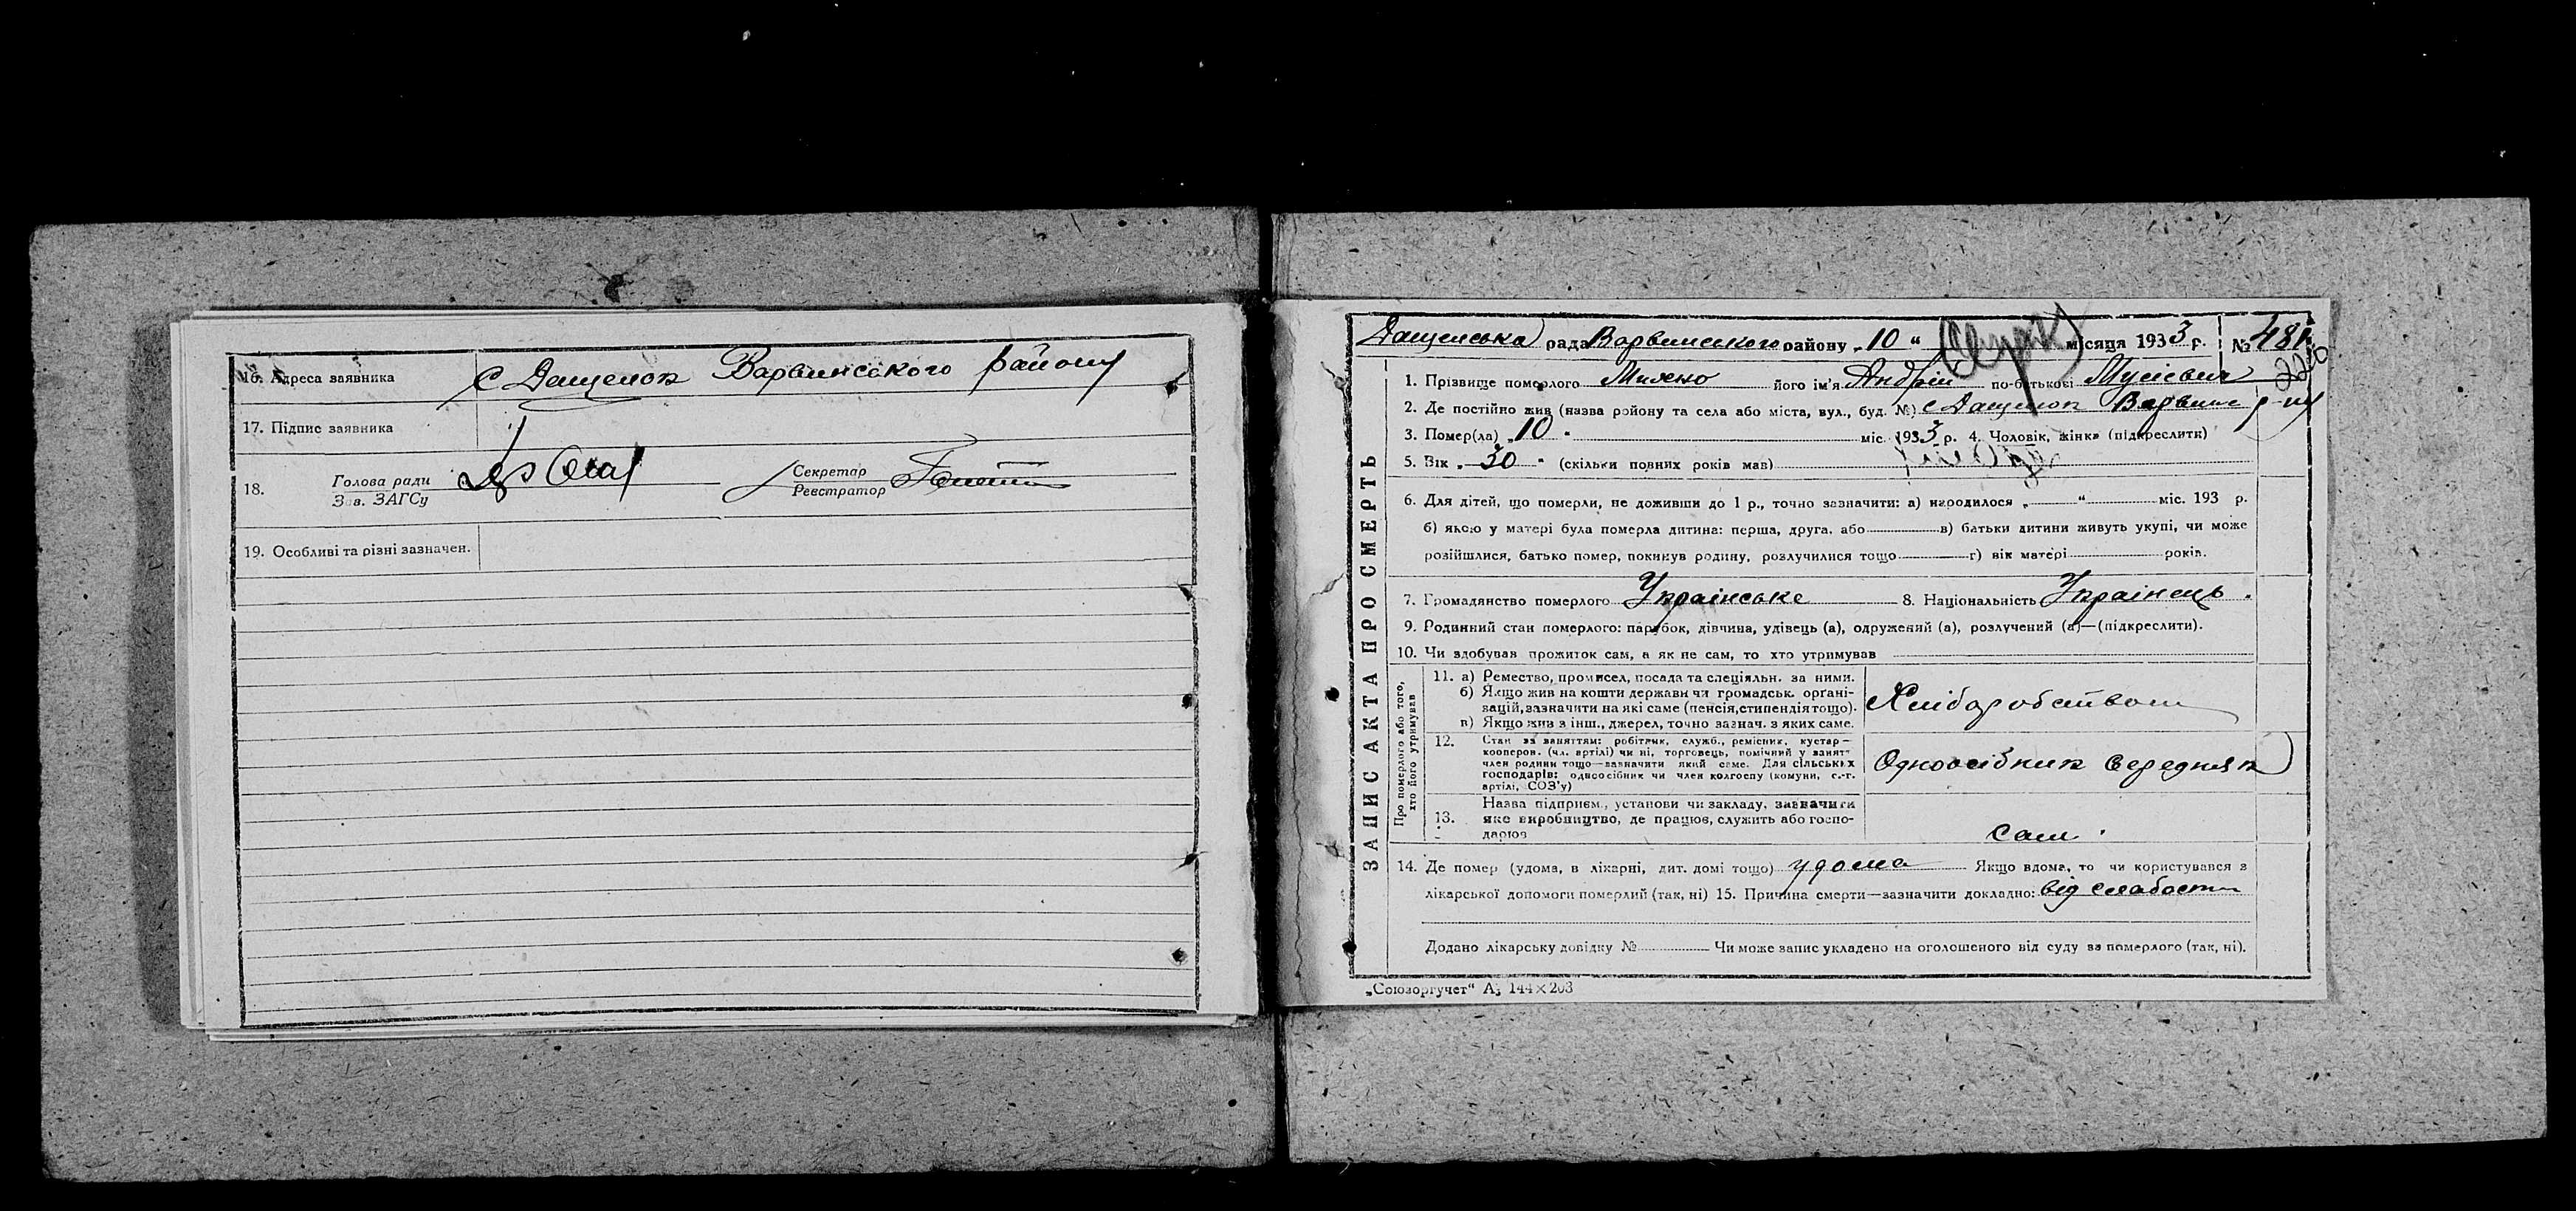 16. Адреса заявника с Дащенок Варвинського району
17. Підпис заявника
18. Голова ради Секретар
Зав. ЗАГСу Реєстратор
19. Особливі та різні зазначен.
Дащенська рада Варвинського району „10“ місяця 1933 р. № 481
220
ЗАПИС АКТА ПРО СМЕРТЬ
1. Прізвище померлого його ім'я Андрій по-батькові Мусієвич
2. Де постійно жив (назва району та села або міста, вул., буд. №) с Дащенок Варвинс р-ну
3. Помер(ла) „10“ міс. 1933 р. 4. Чоловік, жінка (підкреслити)
5. Вік „30“ (скільки повних років мав)
6. Для дітей, що померли, не доживши до 1 р., точно зазначити: а) народилося „ “ міс. 193 р.
б) якою у матері була померла дитина: перша, друга, або в) батьки дитини живуть укупі, чи може
розійшлися, батько помер, покинув родину, розлучилися тощо г) вік матері років.
7. Громадянство померлого Українське 8. Національність Українець.
9. Родинний стан померлого: парубок, дівчина, удівець (а), одружений (а), розлучений (а)—(підкреслити).
10. Чи здобував прожиток сам, а як не сам, то хто утримував
Про померлого або того,
хто його утримував
11. а) Ремество, промисел, посада та спеціяльн. за ними.
б) Якщо жив на кошти держави чи громадськ. органі-
зацій, зазначити на які саме (пенсія, стипендія тощо).
в) Якщо жив з інш., джерел, точно зазнач. з яких саме.
Хліборобством
12. Стан за заняттям: робітник, служб., ремісник, кустар—
кооперов. (чл. артілі) чи ні, торговець, помічний у занят-
член родини тощо—зазначити який саме. Для сільських
господарів: одноосібник чи член колгоспу (комуни, с.-г.
артілі, СОЗ'у)
Одноосібник Середняк
13. Назва підприєм., установи чи закладу, зазначити
яке виробництво, де працює, служить або госпо-
дарює
сам.
14. Де помер (удома, в лікарні, дит. домі тощо) удома Якщо вдома, то чи користувався з
лікарської допомоги померлий (так, ні) 15. Причина смерти—зазначити докладно: від слабости
Додано лікарську довідку № Чи може запис укладено на оголошеного від суду за померлого (так, ні).
„Союзоргучет“ А5 144×203